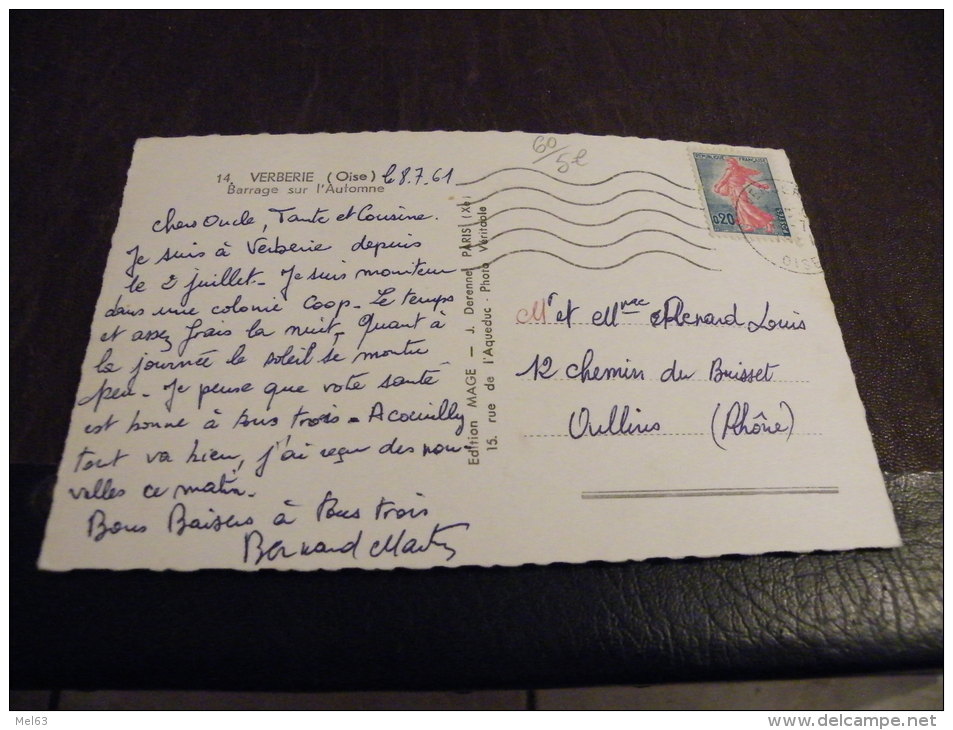 14. VERBERIE (Oise) le 8.7.61
Barrage sur l'Automne
Chers Oncle, Tante et Cousine.
Je suis à Verberie depuis
le 2 juillet. Je suis moniteur
dans une colonie Coop. Le temps
est assez frais la nuit, Quant à
la journée le soleil se montre
peu. Je pense que votre santé
est bonne à tous trois. A
tout va bien, j'ai reçu des nou-
velles ce matin.
Bons Baisers à tous trois
Bernard
Edition MAGE — J. Derenne, PARIS (Xe)
15, rue de l'Aqueduc - Photo Véritable
60/5e
REPUBLIQUE FRANÇAISE
0,20
POSTES
OISE
Mr et Mme Renard Louis
12 chemin du Brisset
Oullins (Rhône)
Mel63
www.delcampe.net